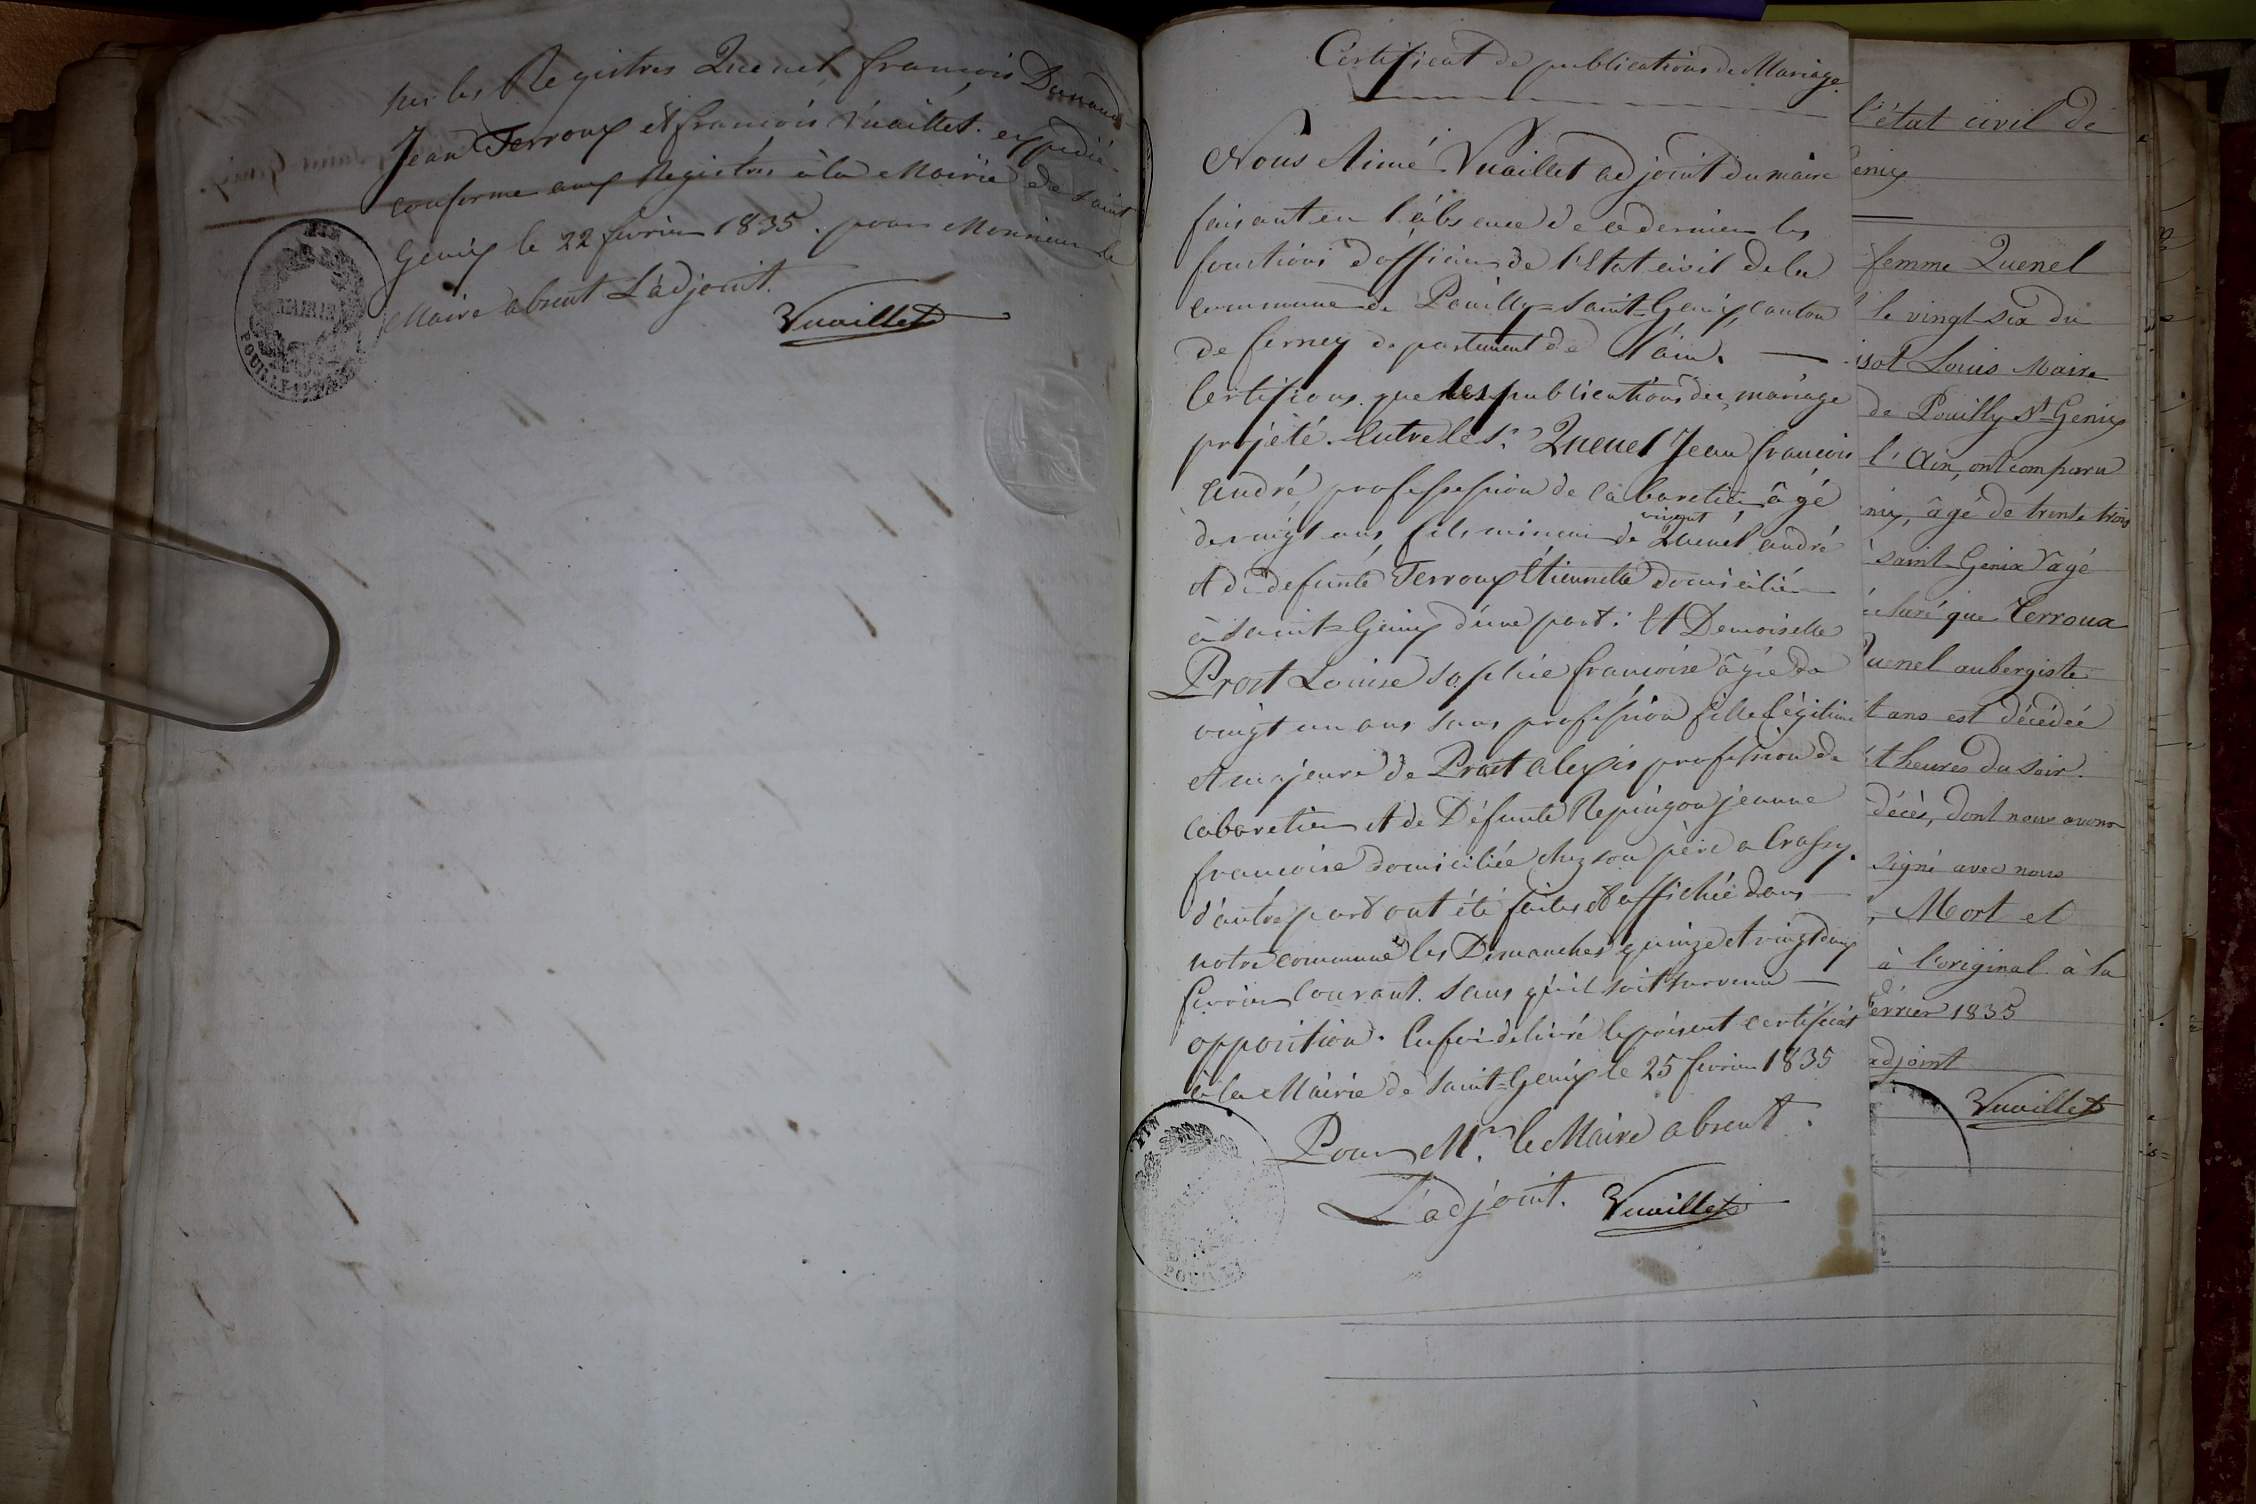 sur les Registres Quenel, françois Durand
Jean Terroux et françois Vuaillet. expedié
conforme aux Registres à la Mairie de Saint
Genix le 22 fevrier 1835. pour Monsieur le
Maire absent L'adjoint.
Vuaillet
MAIRIE
POUILLY
Certificat de publications de Mariage
Nous Aimé Vuaillet adjoint du maire
faisant en l'absence de ce dernier les
fonctions d'officier de l'Etat civil de la
commune de Pouilly-Saint-Genix, canton
de ferney departement de l'ain.
Certifions que les publications du mariage
projeté. Entre le Sr. Quenel Jean françois
André, professsion de cabaretier âgé
de vingt ans, fils mineur de vivant Quenel andré
et de defunte Terroux Etiennette domicilié
à Saint-Genix d'une part; Et Demoiselle
Prost Louise Sophie francoise âgée de
vingt un ans sans profession fille légitime
et majeure de Prost alexis profession de
cabaretier et de Défunte Repingon jeanne
francoise domiciliée chez son père a Crassy.
d'autre part ont été faites et affichée dans
notre commune les Dimanches quinze et vingt deux
fevrier Courant. Sans qu'il soit survenu
opposition. En foi delivré le présent certificat
à la Mairie de Saint-Genix le 25 fevrier 1835
Pour Mr. le Maire absent.
L'adjoint. Vuaillet
POUILLY
l'état civil de
enix
femme Quenel
le vingt six du
isot Louis Maire
de Pouilly St Genix
l'Ain, ont comparu
nix, âgé de trente trois
saint-Genix âgé
claré que Terroux
Quenel aubergiste
t ans est décédée
t heures du soir.
décès, dont nous avons
signé avec nous
Mort et
à l'original à la
février 1835
adjoint
Vuaillet